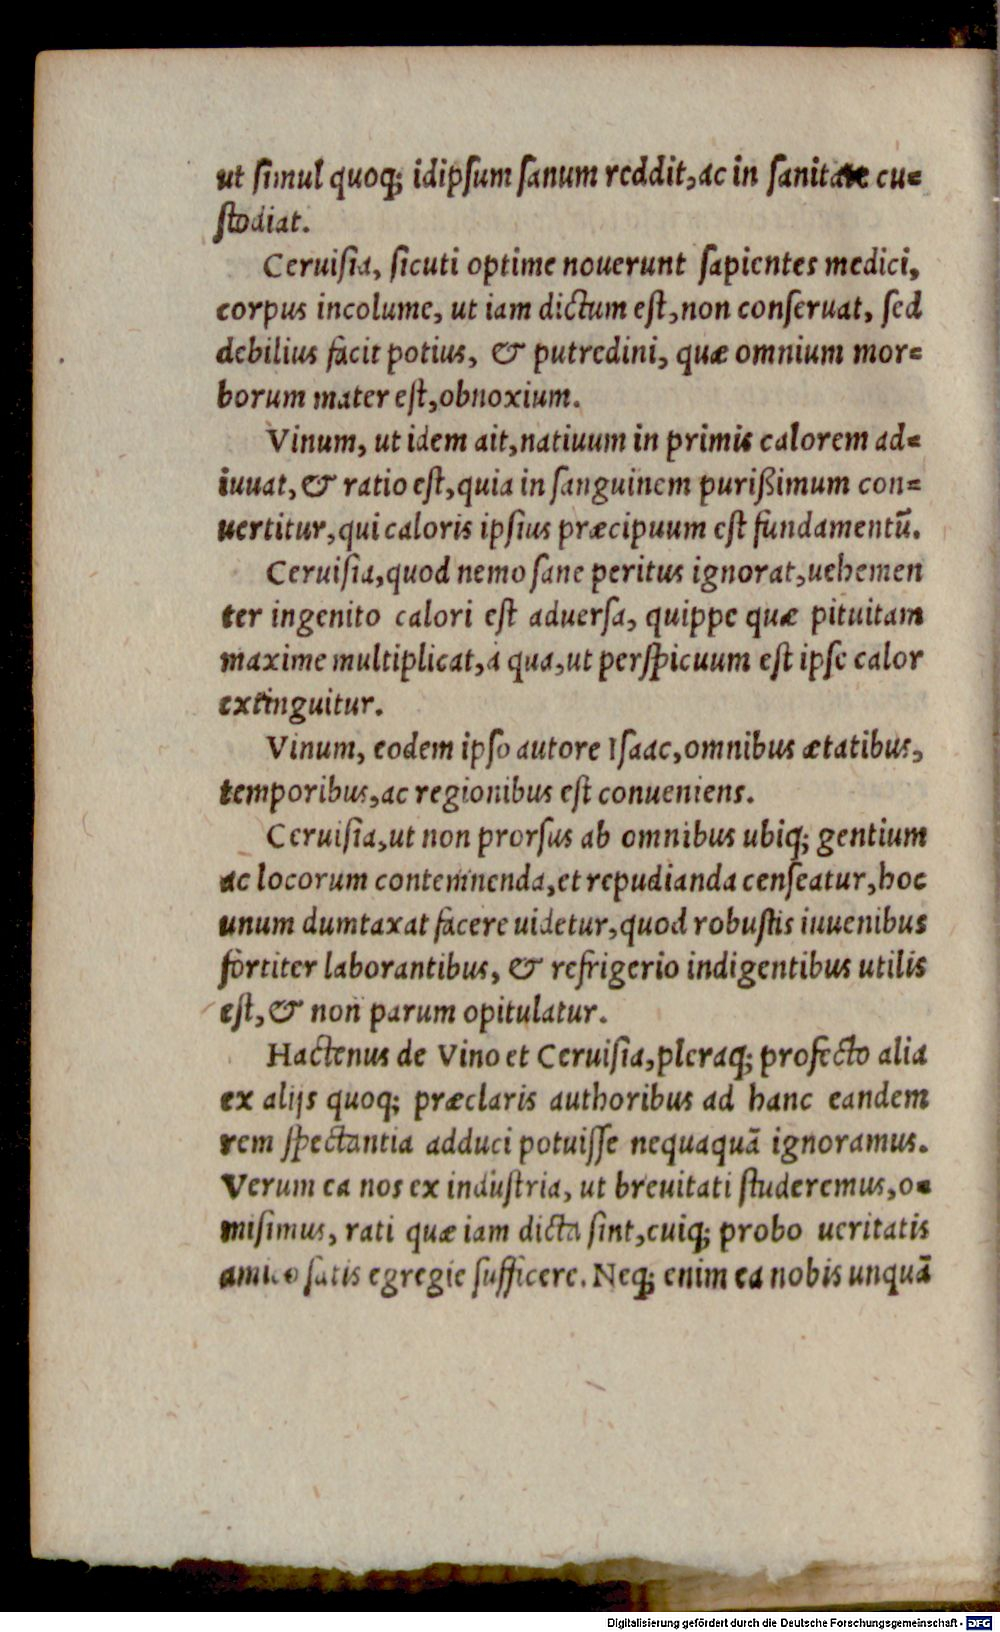 ut ſimul quoq; idipſum ſanum reddit, ac in ſanitate cu⸗
ſtodiat.
Ceruiſia, ſicuti optime nouerunt ſapientes medici,
corpus incolume, ut iam dictum eſt, non conſeruat, ſed
debilius facit potius, & putredini, quæ omnium mor⸗
borum mater eſt, obnoxium.
Vinum, ut idem ait, natiuum in primis calorem ad⸗
iuuat, & ratio eſt, quia in ſanguinem purißimum con⸗
uertitur, qui caloris ipſius præcipuum eſt fundamentū.
Ceruiſia, quod nemo ſane peritus ignorat, uehemen
ter ingenito calori eſt aduerſa, quippe quæ pituitam
maxime multiplicat, à qua, ut perſpicuum eſt ipſe calor
extinguitur.
Vinum, eodem ipſo autore Iſaac, omnibus ætatibus,
temporibus, ac regionibus eſt conueniens.
Ceruiſia, ut non prorſus ab omnibus ubiq; gentium
ac locorum contemnenda, et repudianda cenſeatur, hoc
unum dumtaxat facere uidetur, quod robuſtis iuuenibus
fortiter laborantibus, & refrigerio indigentibus utilis
eſt, & non parum opitulatur.
Hactenus de Vino et Ceruiſia, pleraq; profecto alia
ex alijs quoq; præclaris authoribus ad hanc eandem
rem ſpectantia adduci potuiſſe nequaquā ignoramus.
Verum ea nos ex induſtria, ut breuitati ſtuderemus, o⸗
miſimus, rati quæ iam dicta ſint, cuiq; probo ueritatis
amico ſatis egregie ſufficere. Neq; enim ea nobis unquā
Digitalisierung gefördert durch die Deutsche Forschungsgemeinschaft - DFG